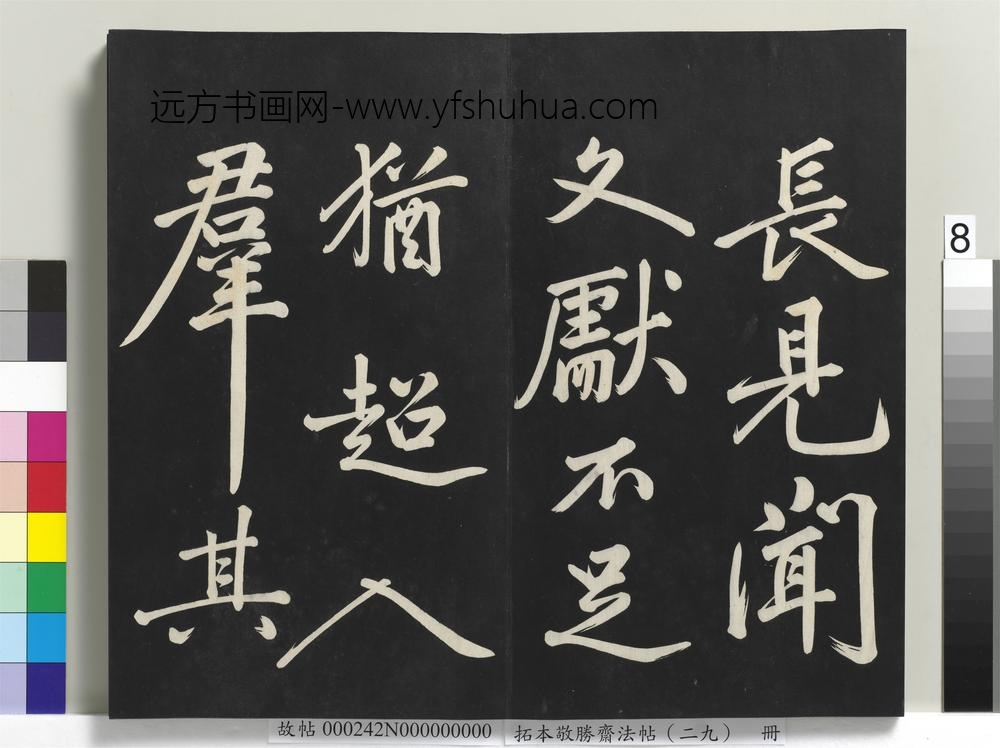 远方书画网-www.yfshuhua.com
長見聞
文獻不足
猶超入
羣其
8
故帖 000242N000000000 拓本敬勝齋法帖（二九） 冊